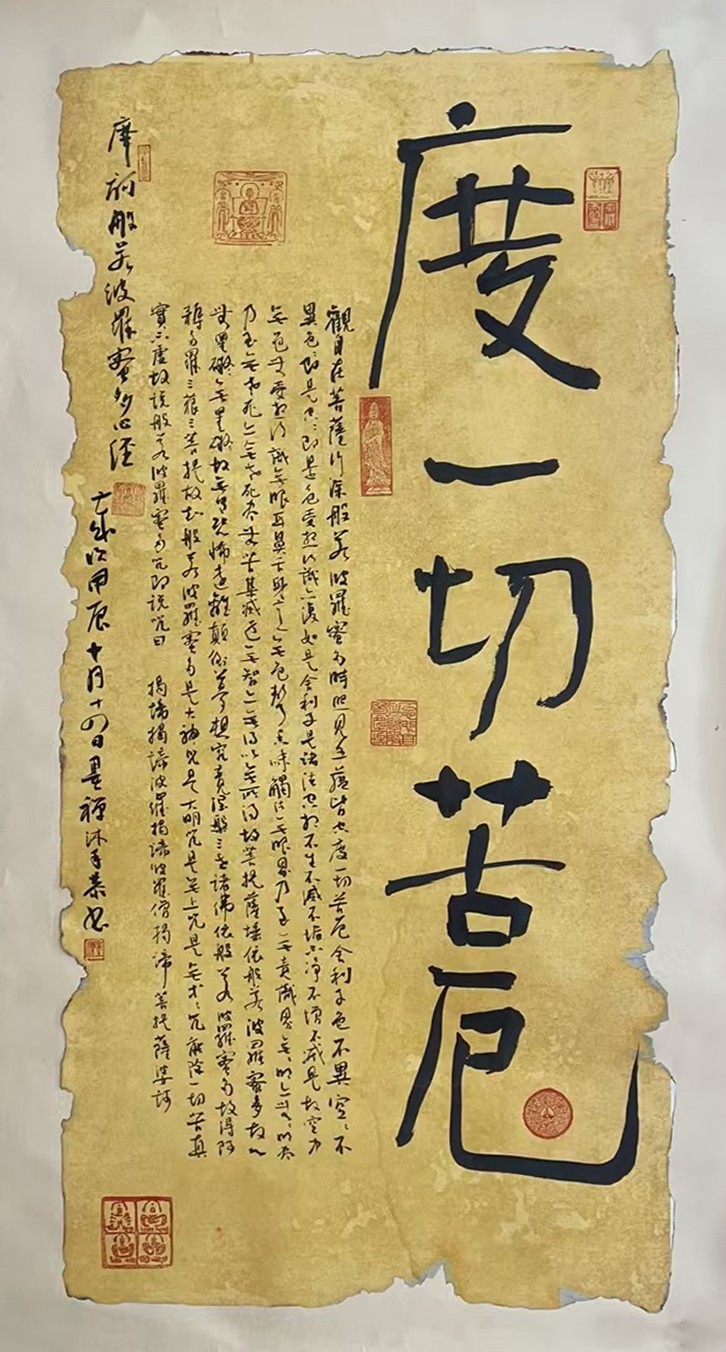 度一切苦厄
觀自在菩薩行深般若波羅蜜多時照見五蘊皆空度一切苦厄舍利子色不異空空不
異色色即是空空即是色受想行識亦復如是舍利子是諸法空相不生不滅不垢不净不增不减是故空中
無色無受想行識無眼耳鼻舌身意無色聲香味觸法無眼界乃至無意識界無無明亦無無明盡
乃至無老死亦無老死盡無苦集滅道無智亦無得以無所得故菩提薩埵依般若波羅蜜多故心
無罣礙無罣礙故無有恐怖遠離顛倒夢想究竟涅槃三世諸佛依般若波羅蜜多故得阿
耨多羅三藐三菩提故知般若波羅蜜多是大神咒是大明咒是無上咒是無等等咒能除一切苦真
實不虛故說般若波羅蜜多咒即說咒曰 揭諦揭諦波羅揭諦波羅僧揭諦菩提薩婆訶
摩訶般若波羅蜜多心經
歲次甲辰十月十四日墨禪沐手恭書